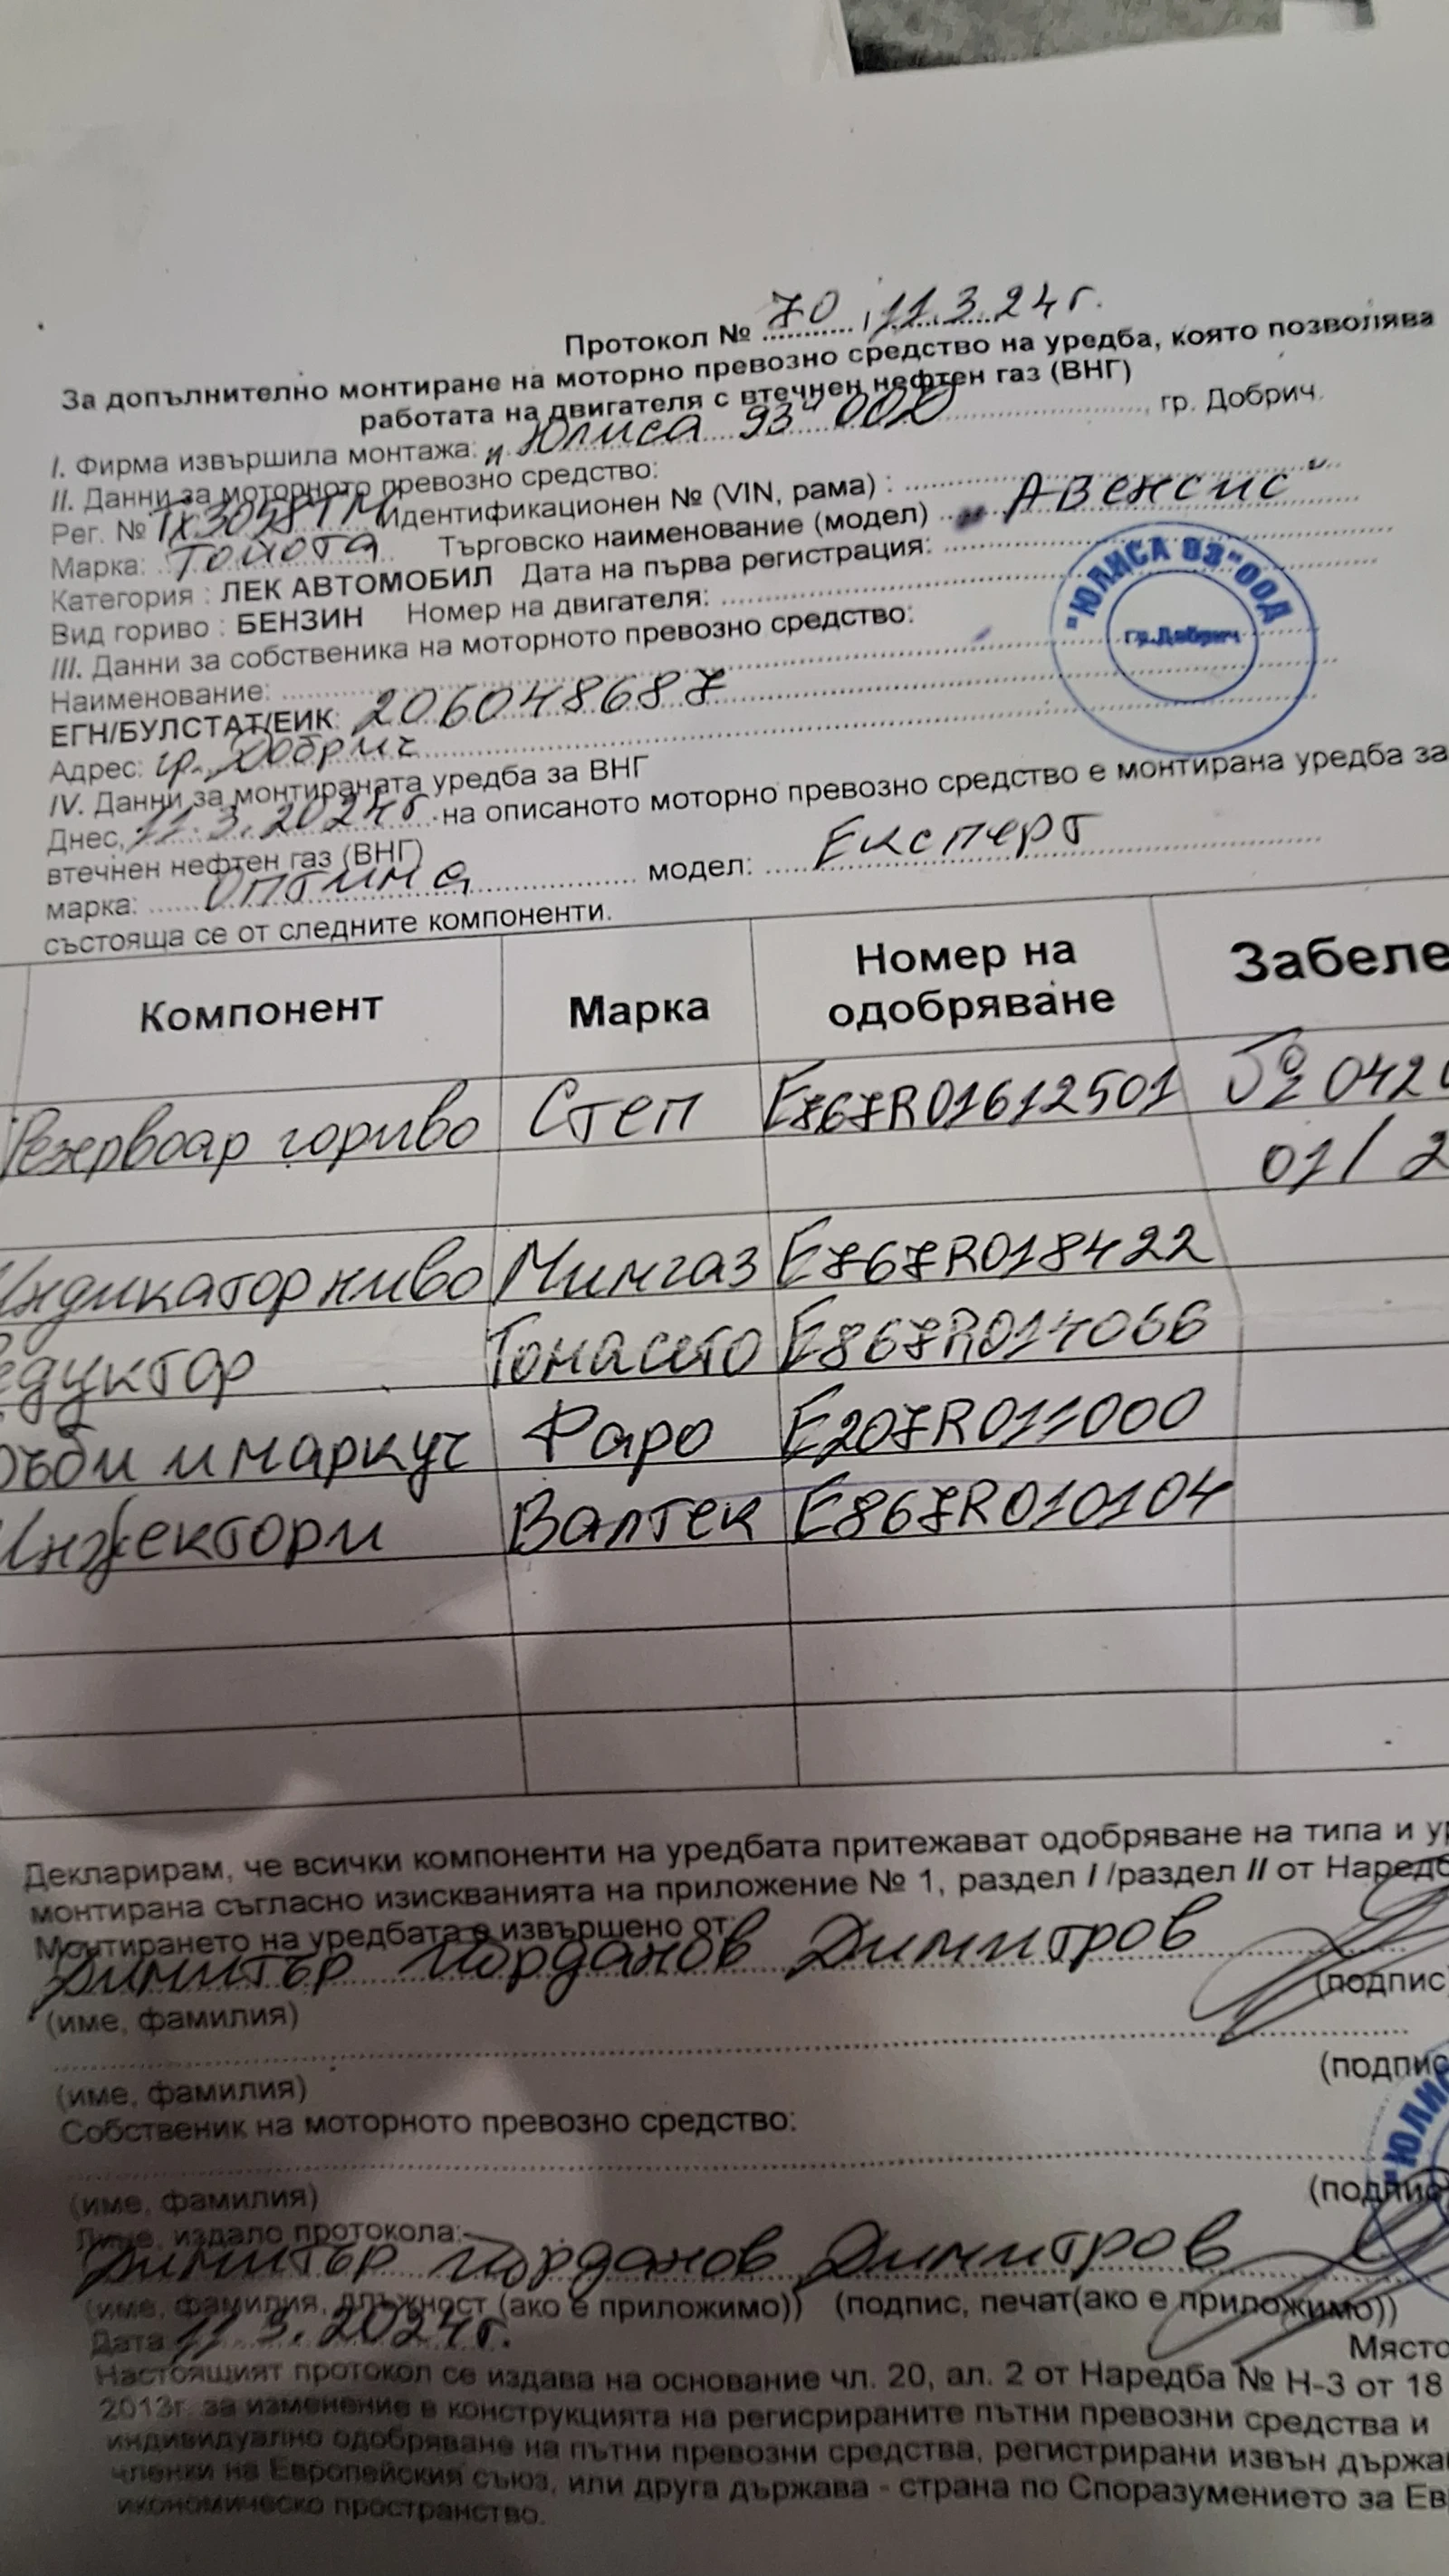 Протокол № 70 / 11.3.24г.
За допълнително монтиране на моторно превозно средство на уредба, която позволява
работата на двигателя с втечнен нефтен газ (ВНГ)
I. Фирма извършила монтажа: "Юлиса 93" ООД, гр. Добрич.
II. Данни за моторното превозно средство:
Рег. № ТХ3058ТМ Идентификационен № (VIN, рама) :
Марка: Тойота Търговско наименование (модел) "Авенсис"
Категория : ЛЕК АВТОМОБИЛ Дата на първа регистрация:
Вид гориво : БЕНЗИН Номер на двигателя:
"ЮЛИСА 93" ООД
гр.Добрич
III. Данни за собственика на моторното превозно средство:
Наименование:
ЕГН/БУЛСТАТ/ЕИК: 206048687
Адрес: гр. Добрич
IV. Данни за монтираната уредба за ВНГ
Днес, 11.3.2024г. на описаното моторно превозно средство е монтирана уредба за
втечнен нефтен газ (ВНГ)
марка: Оптима модел: Експерт
състояща се от следните компоненти.
Компонент Марка Номер на одобряване Забеле
Резервоар гориво Степ E767R01612501 № 042
01/2
Индикатор ниво Мимгаз E767R018422
едуктор Томасето E867R014066
ръби и маркуч Фаро E207R011000
Инжектори Валтек E867R010104
Декларирам, че всички компоненти на уредбата притежават одобряване на типа и ур
монтирана съгласно изискванията на приложение № 1, раздел I /раздел II от Наредб
Монтирането на уредбата е извършено от:
Димитър Йорданов Димитров
(подпис)
(име, фамилия)
(подпис
(име, фамилия)
Собственик на моторното превозно средство:
"ЮЛИС
(подпис
(име, фамилия)
Лице, издало протокола:
Димитър Йорданов Димитров
(име, фамилия, длъжност (ако е приложимо)) (подпис, печат(ако е приложимо))
Дата 11.3.2024г.
Място
Настоящият протокол се издава на основание чл. 20, ал. 2 от Наредба № Н-3 от 18
2013г. за изменение в конструкцията на регисрираните пътни превозни средства и
индивидуално одобряване на пътни превозни средства, регистрирани извън държа
членки на Европейския съюз, или друга държава - страна по Споразумението за Ев
икономическо пространство.